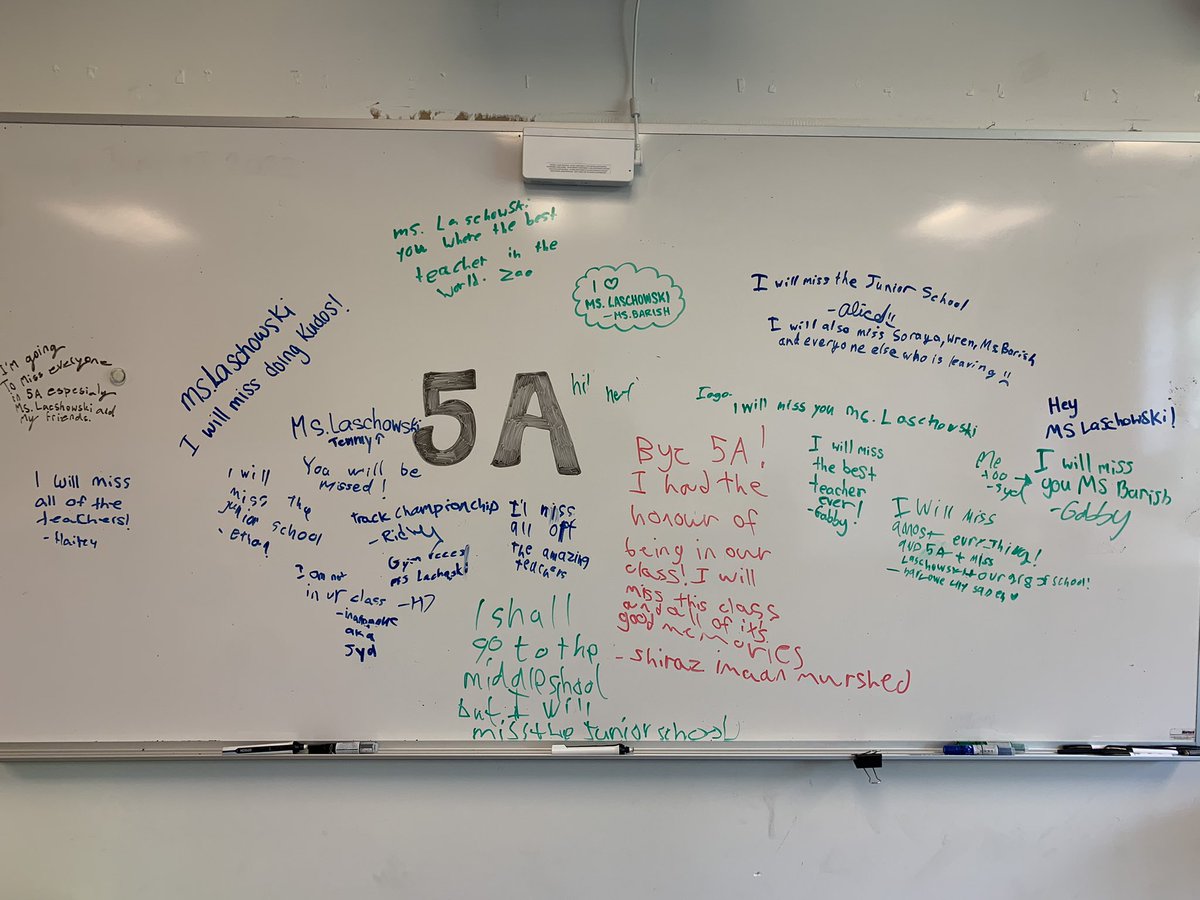 I'm going
To miss everyone
in 5A especialy
Ms. Lacshowski and
My friends.
I will miss
all of the
teachers!
Ms.Laschowski
I will miss doing Kudos!
ms. Laschowski
you where the best
teacher in the
world. Zoo
I ♡
MS. LASCHOWSKI
—MS.BARISH
I will miss the Junior School
I will also miss Soraya, Wren, Ms Barish
and everyone else who is leaving
5A
hi!
hey!
Ms. Laschowski
You will be
missed!
I will
miss the
junior school
- Ethan
track championchip
Gym
I am not
in ur class
aka
Syd
I'll miss
all off
the amazing
teachers
I shall
go to the
middle school
but I will
miss the junior school
Bye 5A!
I had the
honour of
being in our
class! I will
miss this class
and all of it's
good memories
- shiraz imaan murshed
I will miss you Ms. Laschowski
I will miss
the best
teacher
ever!
-Gabby!
Me
too
-Syd
Hey
MS Laschowski!
I will miss
you MS Barish
-Gabby
I Will Miss
amost evry thing!
and 5A + miss